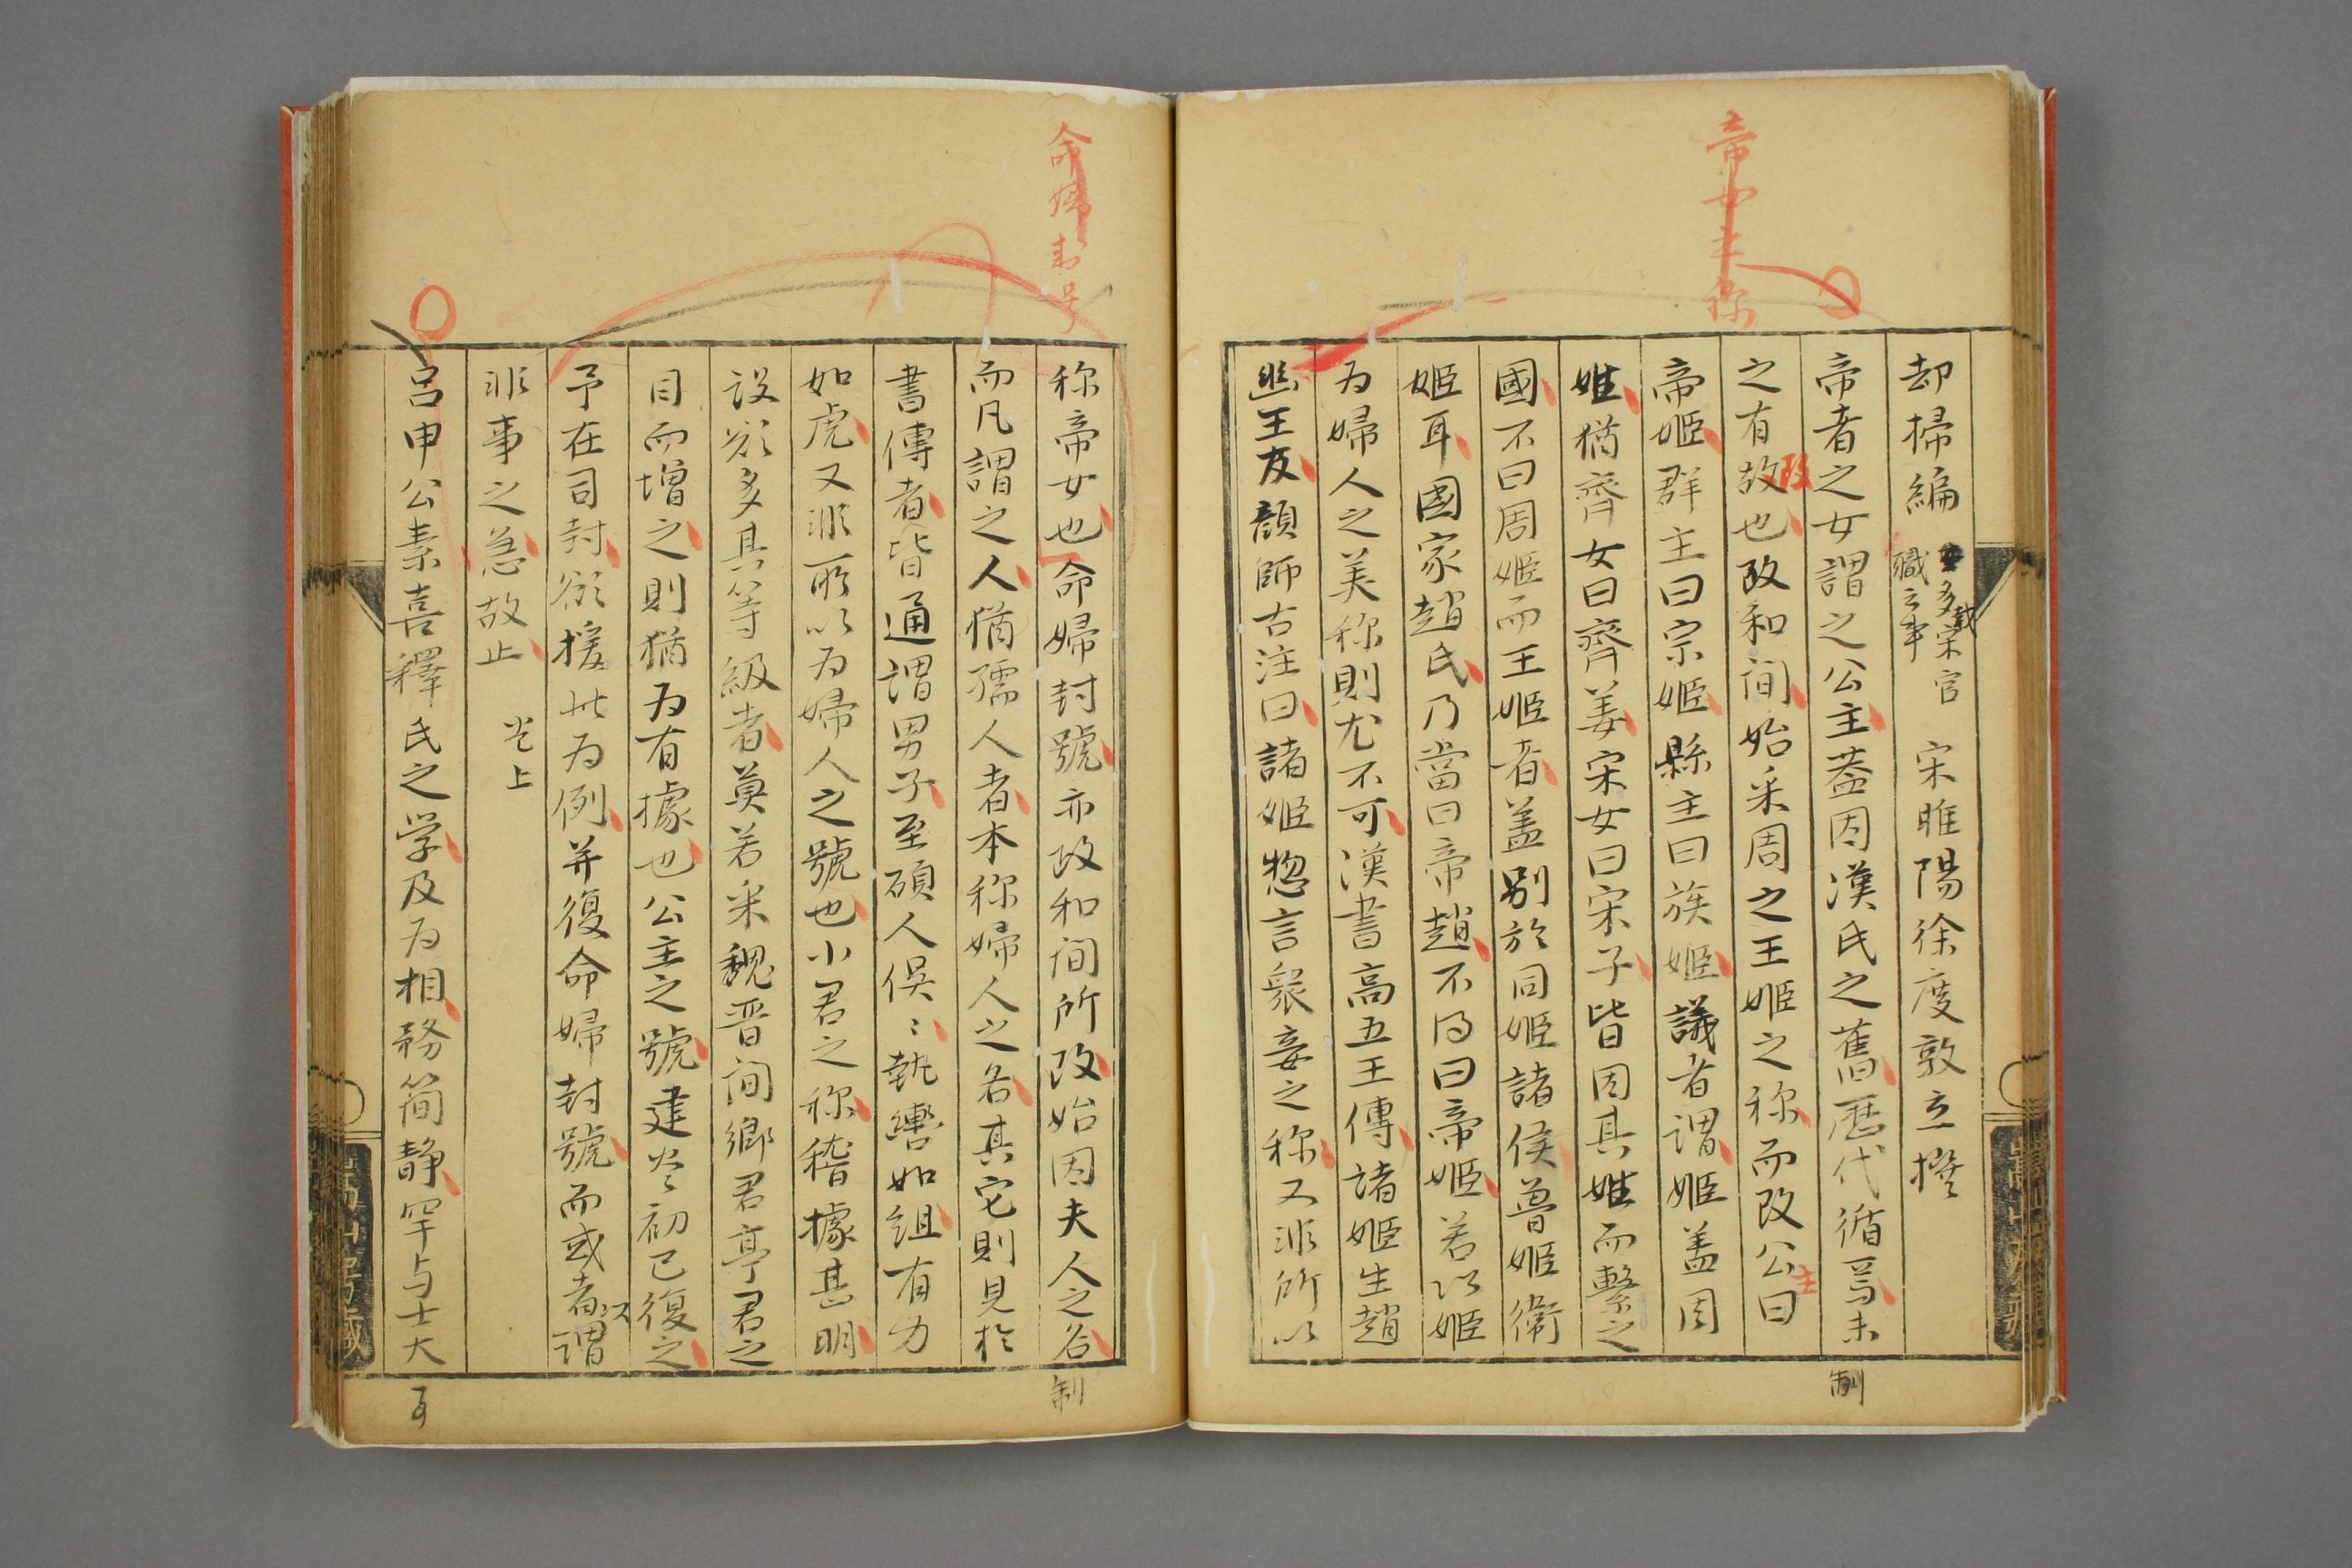 帝女主称
却掃編 多載宋官職之事 宋睢陽徐度敦立撰
帝者之女謂之公主蓋因漢氏之舊歷代循焉未
之有改也政和间始采周之王姬之称而改公主曰
帝姬群主曰宗姬縣主曰族姬議者謂姬盖周
姓猶齊女曰齊姜宋女曰宋子皆因其姓而繫之
國不曰周姬而王姬者盖别於同姬諸侯魯姬衛
姬耳國家趙氏乃當曰帝趙不得曰帝姬若以姬
为婦人之美称則尤不可漢書高五王傳諸姬生趙
幽王友顔師古注曰諸姬惣言衆妾之称又非所以
制
命婦封号
称帝女也命婦封號亦政和间所改始因夫人之名
而凡謂之人人猶孺人者本称婦人之名其它則見於
書傳者皆通謂男子至碩人俣〻執轡如組有力
如虎又非所以为婦人之號也小君之称稽據甚明
設欲多其等級者莫若采魏晋间鄉君亭君之
目而增之則猶为有據也公主之號建炎初已復之
予在司封欲援此为例并復命婦封號而或者以謂
非事之急故止 卷上
吕申公素喜釋氏之学及为相務簡静罕与士大
制